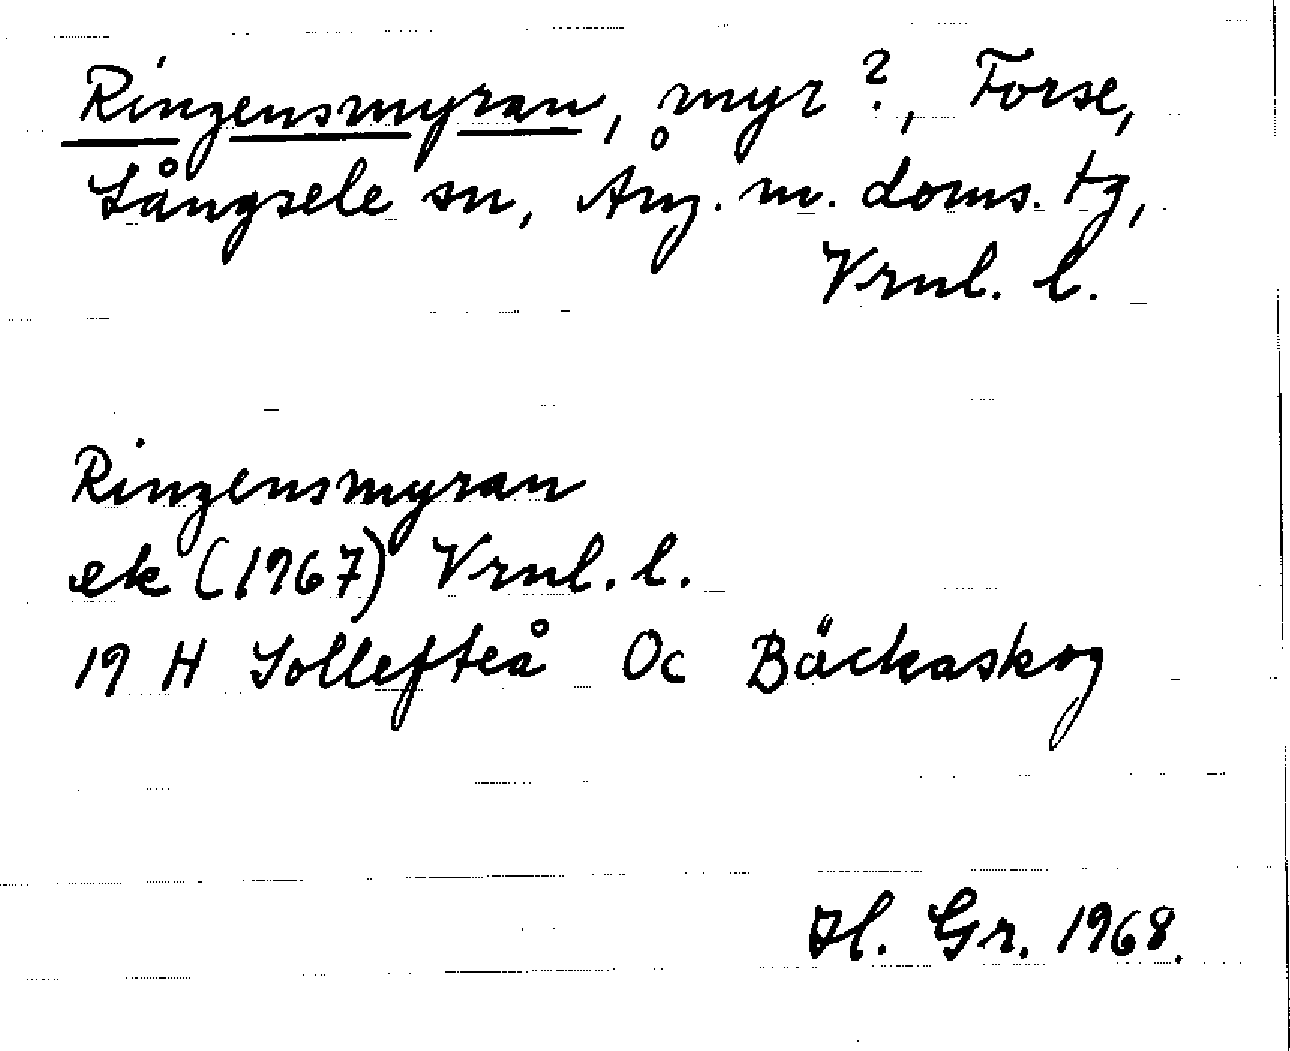 Ringensmyran, myr?, Forse,
Långsele sn, Ång. m. doms. tg,
Vrnl. l.
Ringensmyran
ek (1967) Vrnl. l.
19 H Sollefteå Oc Bäckaskog
Hl. Gr. 1968.